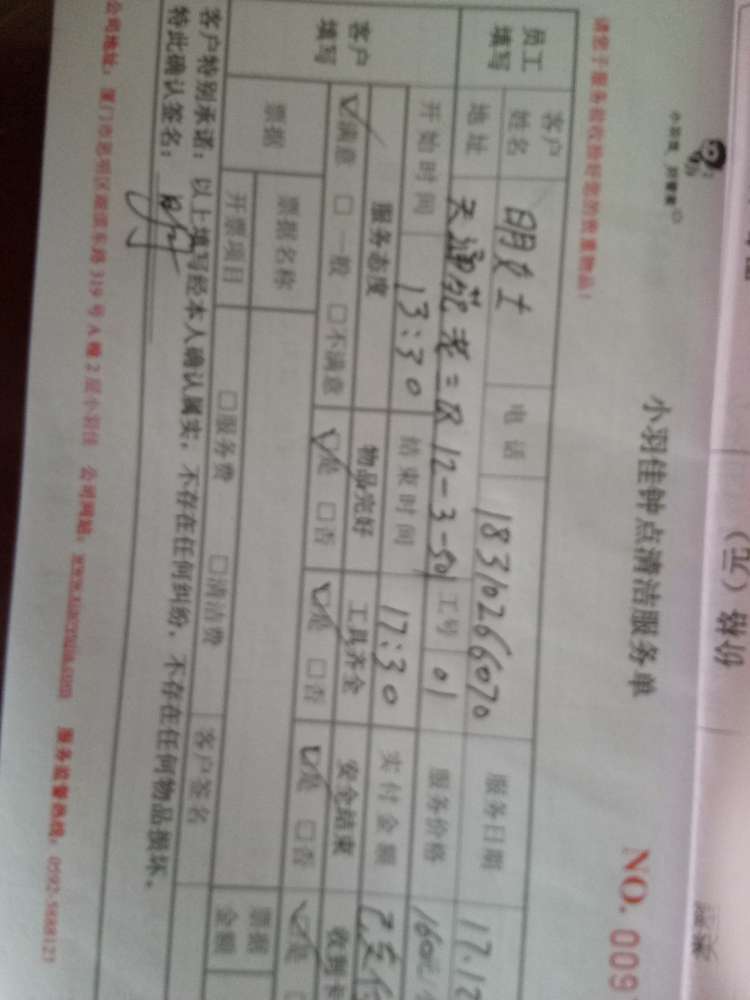 小羽佳钟点清洁服务单
NO. 009
请您于服务前收捡好您的贵重物品!
员工填写 客户姓名 明女士 电话 18310266070 服务日期 17.12
地址 天通苑老二区12-3-501 工号 01 服务价格 160元/
开始时间 13:30 结束时间 17:30 实付金额 已支付
客户填写 服务态度 物品完好 工具齐全 安全结束 收到
☑满意 □一般 □不满意 ☑是 □否 ☑是 □否 ☑是 □否 ☑是
票据 票据名称 票据金额
开票项目 □服务费 □清洁费 客户签名
客户特别承诺:以上填写经本人确认属实,不存在任何纠纷,不存在任何物品损坏。
特此确认签名:
公司地址:厦门市思明区湖滨东路319号A幢2层小羽佳 公司网站:www.xiaoyujia.com 服务监督热线:0592-5888123